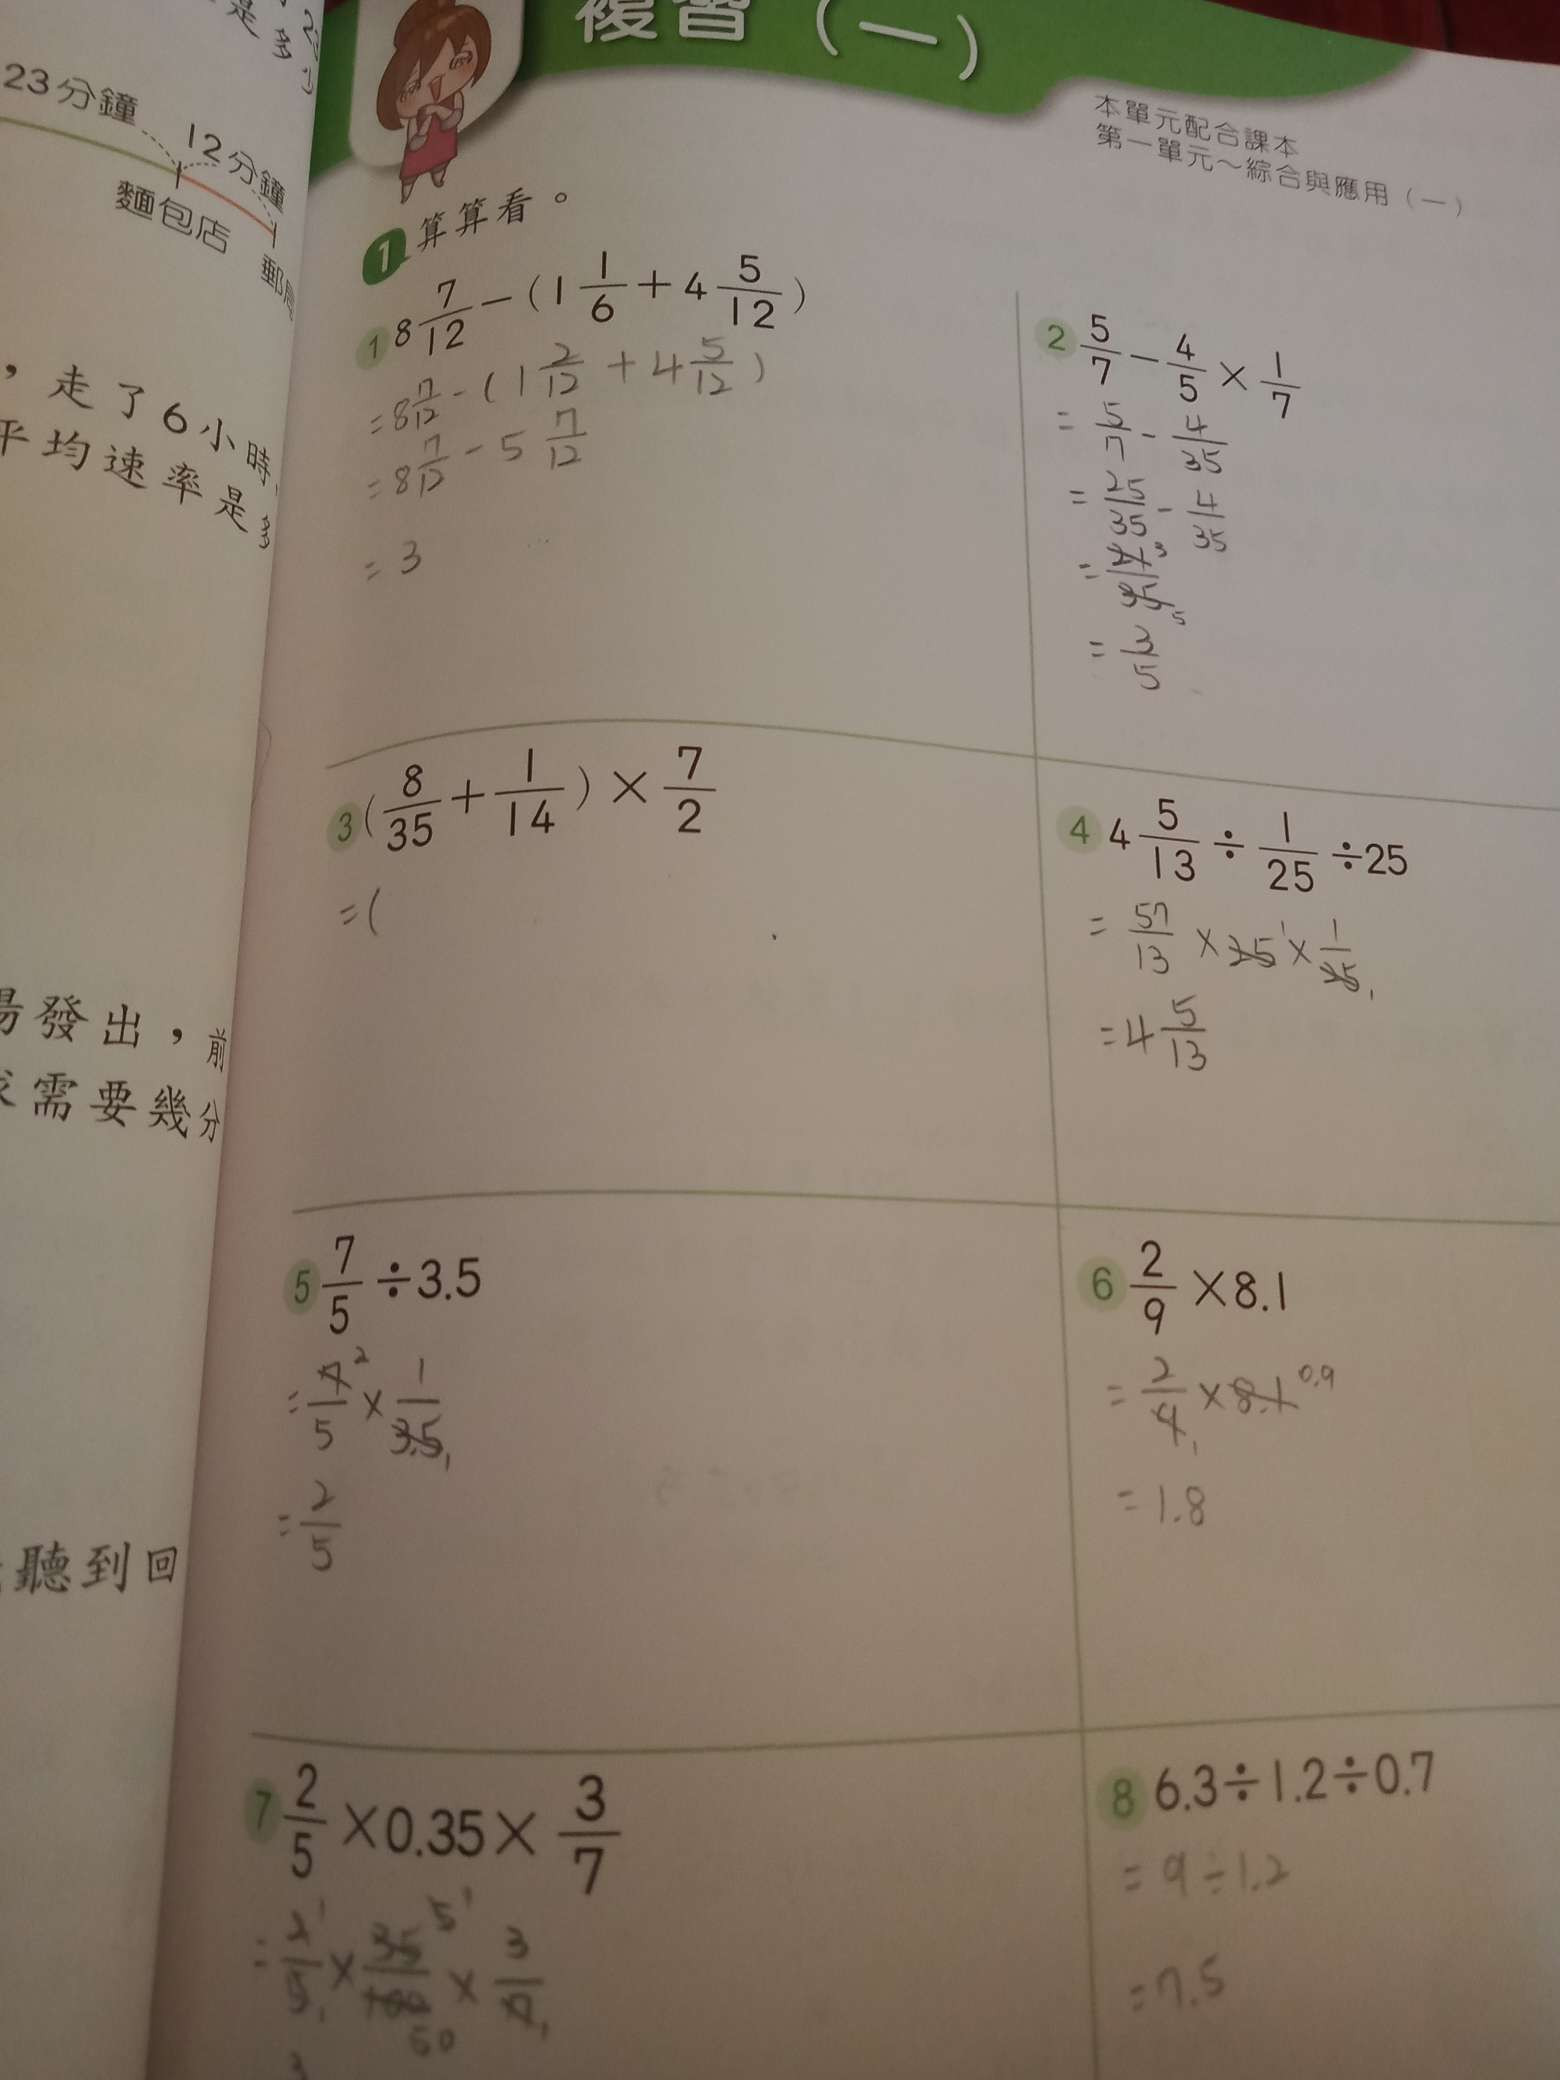 是多少
23分鐘
12分鐘
麵包店
走了6小時
平均速率是多
發出,前
需要幾分
聽到回
複習(一)
本單元配合課本
第一單元~綜合與應用(一)
1 算算看。
1 8 7/12 - (1 1/6 + 4 5/12)
= 8 7/12 - (1 2/12 + 4 5/12)
= 8 7/12 - 5 7/12
= 3
2 5/7 - 4/5 × 1/7
= 5/7 - 4/35
= 25/35 - 4/35
= 21/35 3 5
= 3/5
3 (8/35 + 1/14) × 7/2
= (
4 4 5/13 ÷ 1/25 ÷25
= 57/13 × 25 1 × 1/25 1
= 4 5/13
5 7/5 ÷3.5
= 7/5 2 × 1/3.5 1
= 2/5
6 2/9 ×8.1
= 2/9 1 × 8.1 0.9
= 1.8
7 2/5 ×0.35× 3/7
= 2/5 1 1 × 35/100 5 1 50 × 3/7 1
8 6.3÷1.2÷0.7
= 9÷1.2
= 7.5